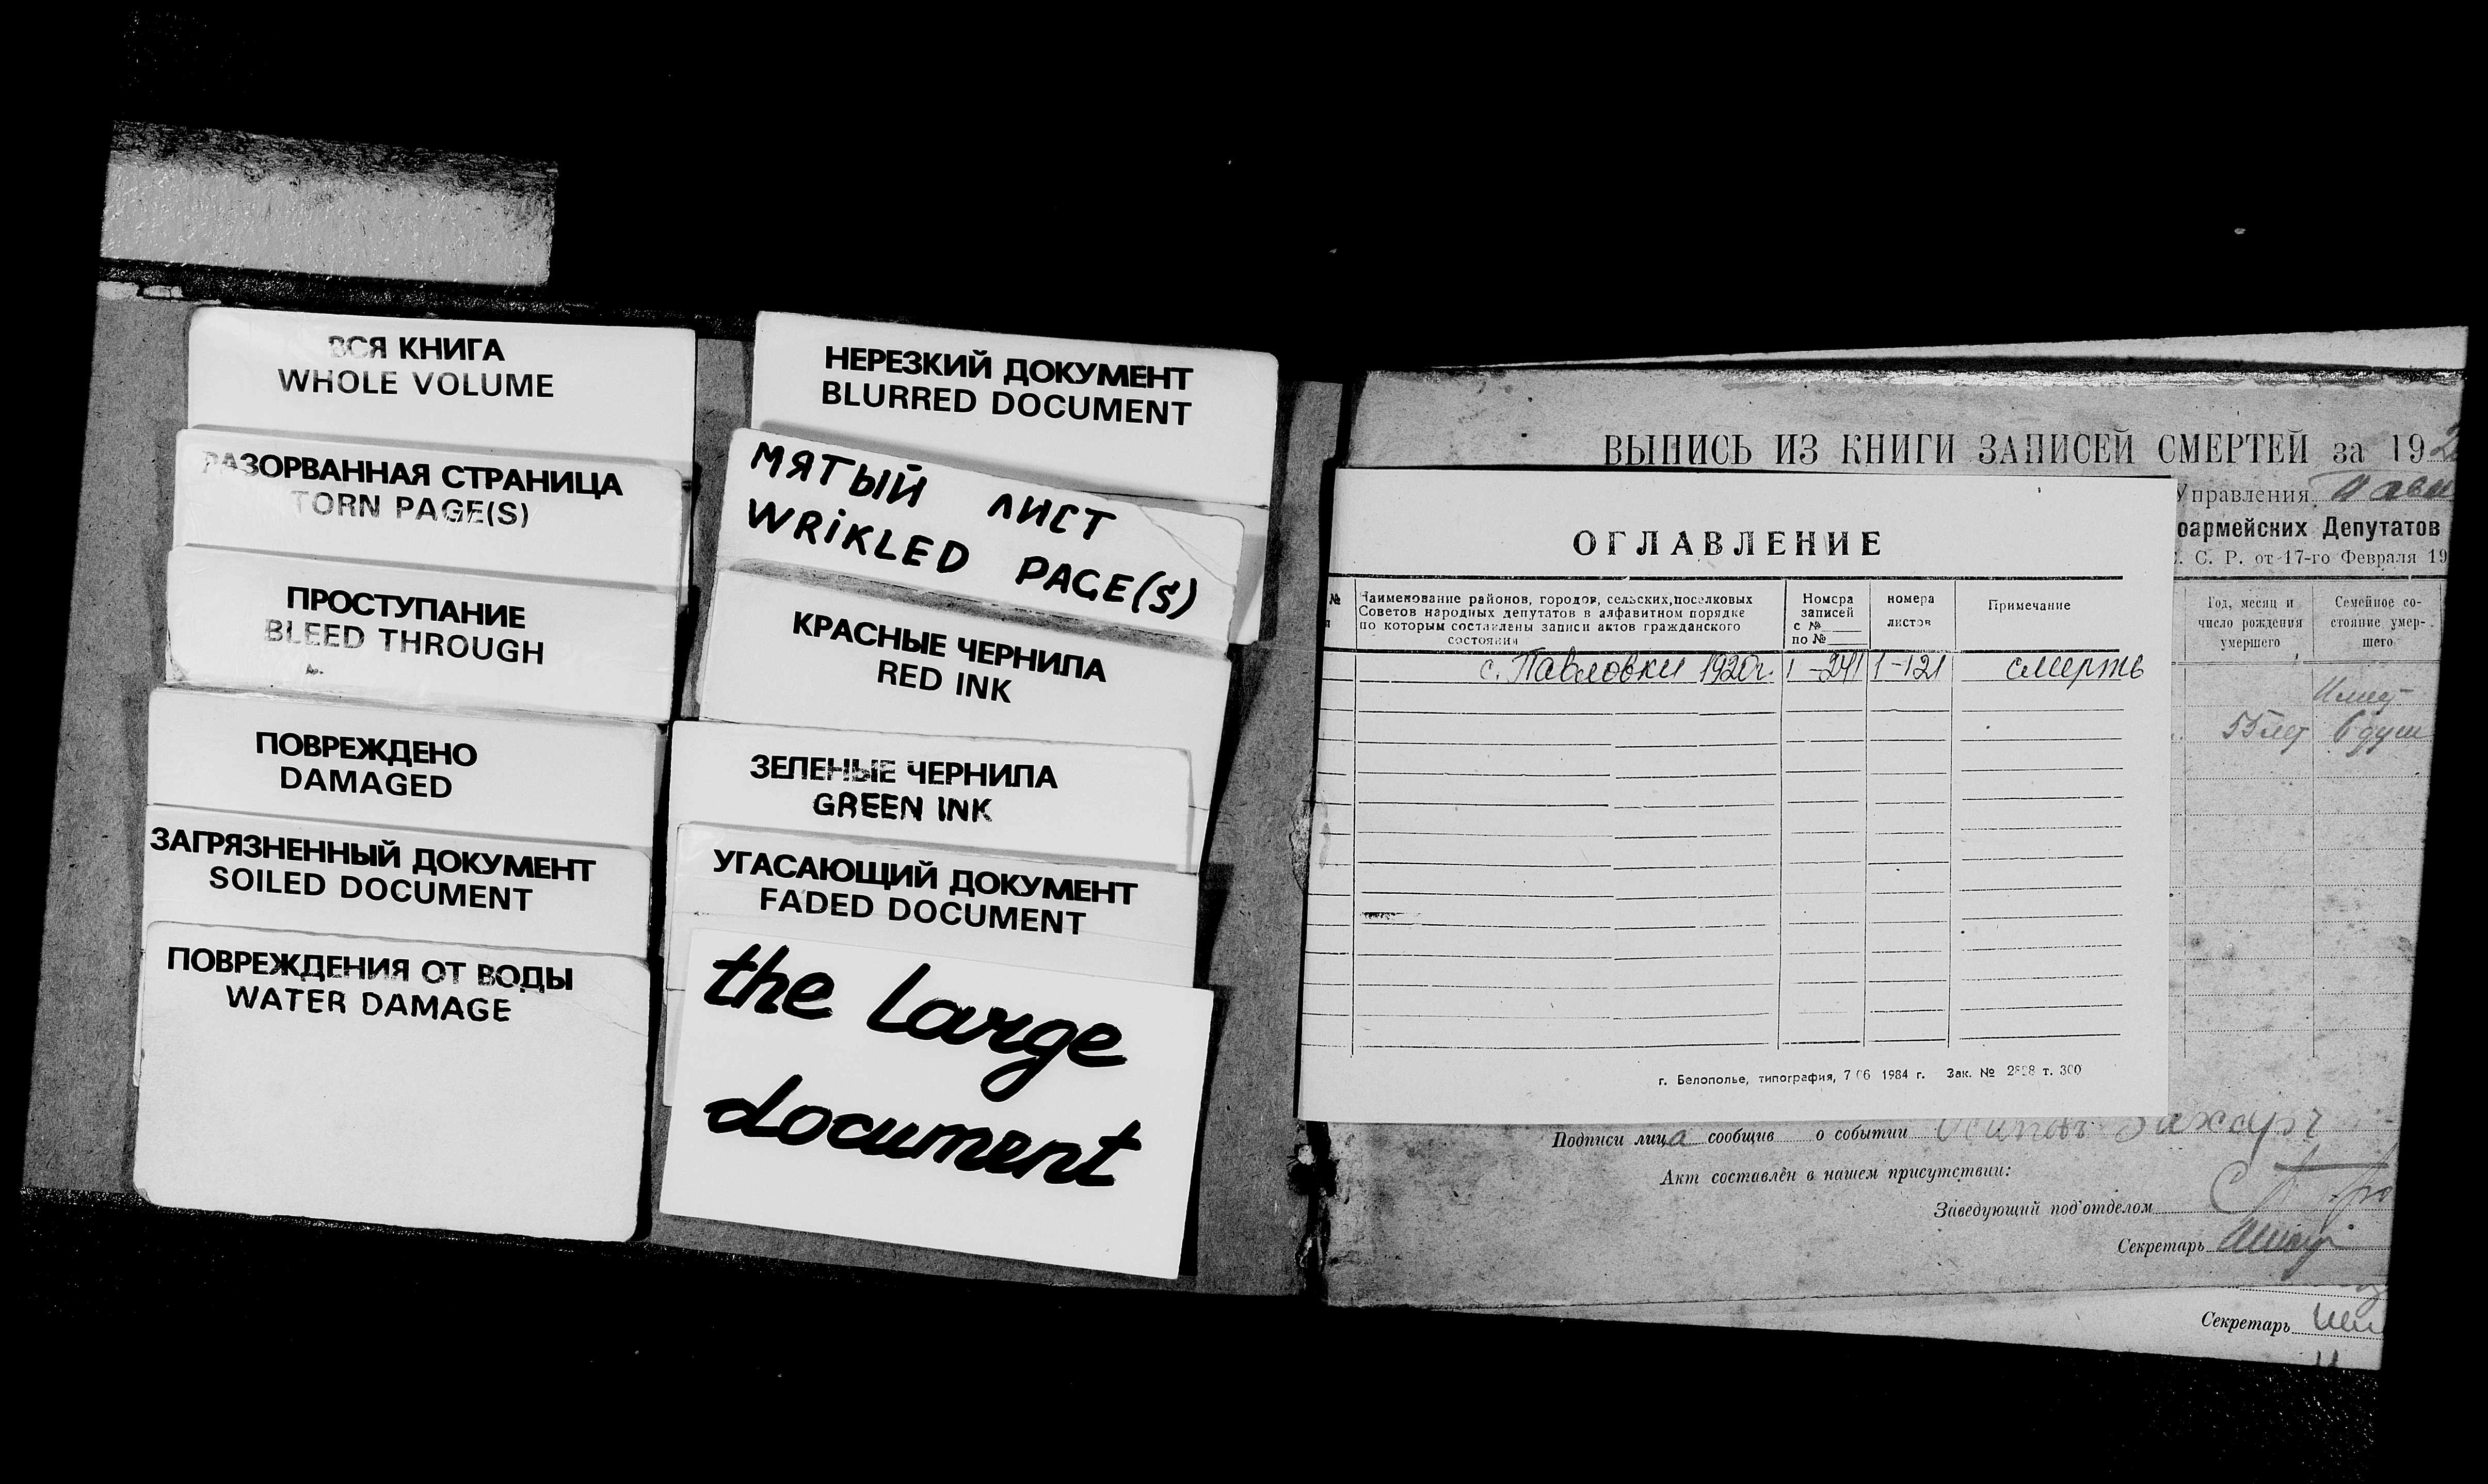 ВСЯ КНИГА
WHOLE VOLUME
РАЗОРВАННАЯ СТРАНИЦА
TORN PAGE(S)
ПРОСТУПАНИЕ
BLEED THROUGH
ПОВРЕЖДЕНО
DAMAGED
ЗАГРЯЗНЕННЫЙ ДОКУМЕНТ
SOILED DOCUMENT
ПОВРЕЖДЕНИЯ ОТ ВОДЫ
WATER DAMAGE
НЕРЕЗКИЙ ДОКУМЕНТ
BLURRED DOCUMENT
МЯТЫЙ ЛИСТ
WRIKLED PAGE(S)
КРАСНЫЕ ЧЕРНИЛА
RED INK
ЗЕЛЕНЫЕ ЧЕРНИЛА
GREEN INK
УГАСАЮЩИЙ ДОКУМЕНТ
FADED DOCUMENT
the large
document
ВЫПИСЬ ИЗ КНИГИ ЗАПИСЕЙ СМЕРТЕЙ за 192
Управления
оармейских Депутатов
С. Р. от 17-го Февраля 19
ОГЛАВЛЕНИЕ
№
Наименование районов, городов, сельских, поселковых
Советов народных депутатов в алфавитном порядке
по которым составлены записи актов гражданского
состояния
Номера
записей
с №
по №
номера
листов
Примечание
Год, месяц и
число рождения
умершего
Семейное со-
стояние умер-
шего
с. Павловки 1920г. 1-241 1-121 смерть
55 лет 6 душ
г. Белополье, типография, 1984 г. Зак. № т. 300
Подписи лица сообщив о событии
Акт составлен в нашем присутствии:
Заведующий под'отделом
Секретарь
Секретарь